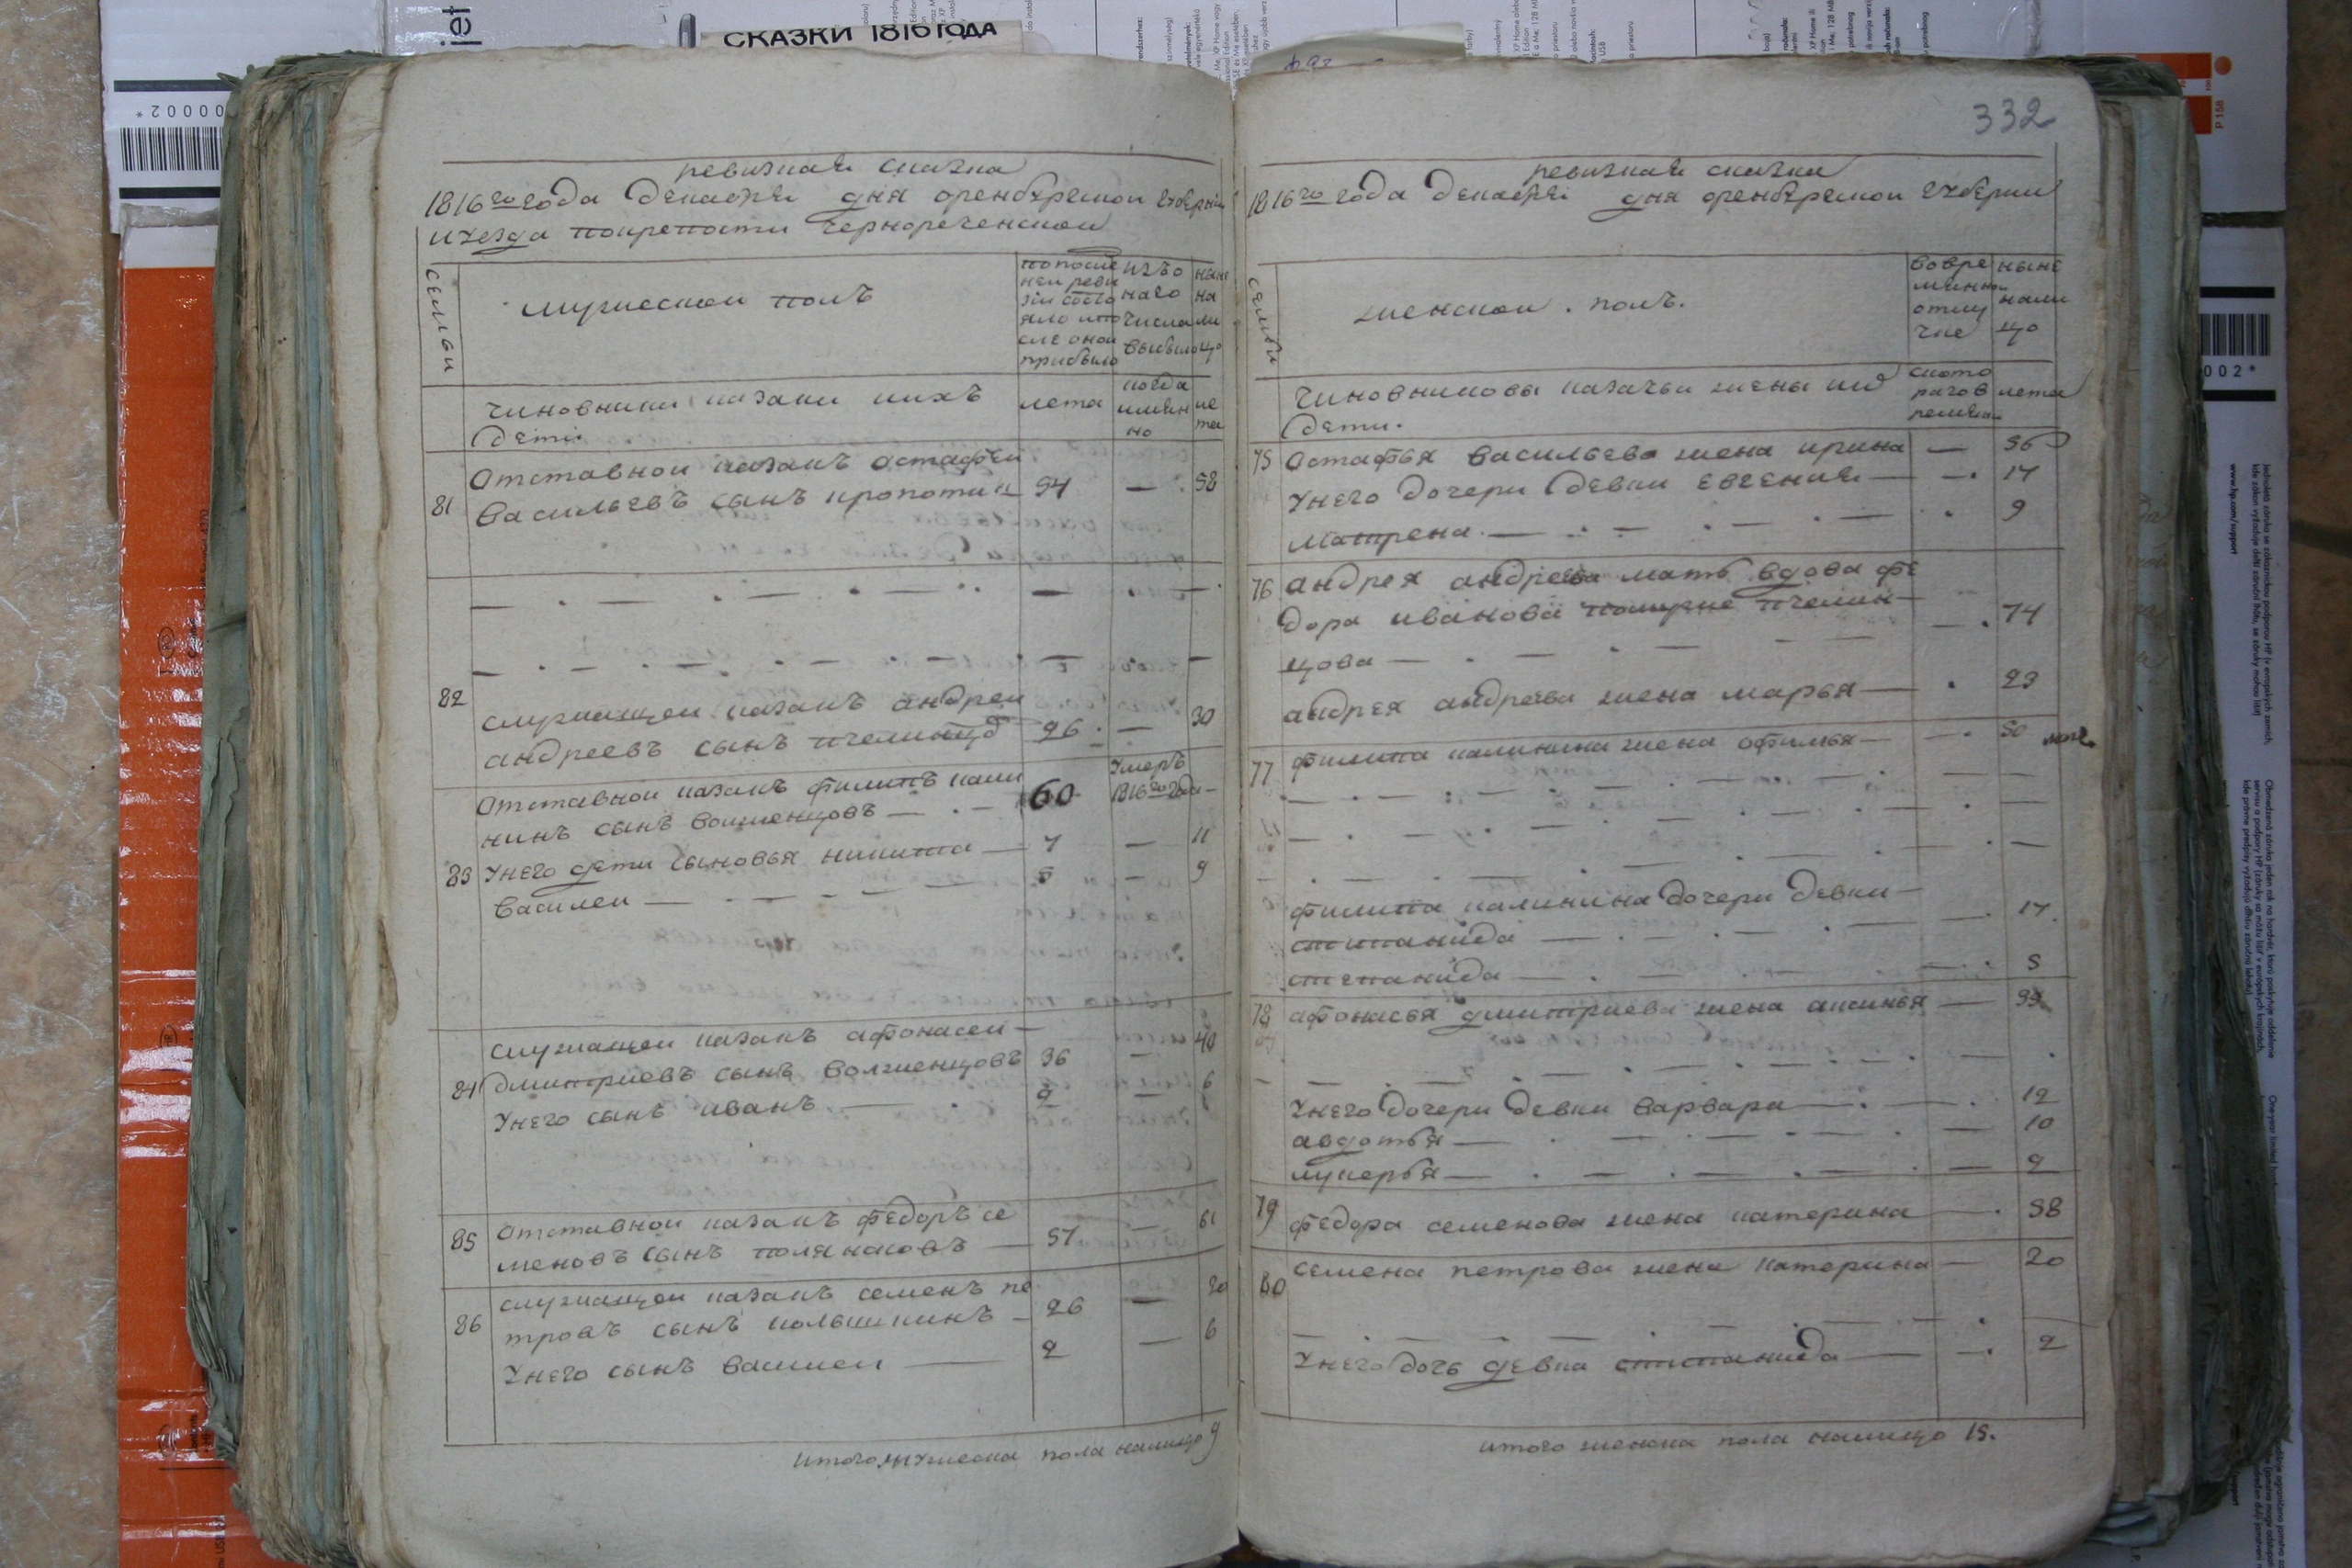 СКАЗКИ 1816 ГОДА
ревизная сказка
1816го года декабря дня оренбурской губерніи
и уезда по крепости Чернореченской
семьи
мужеской полъ
по после
ней реви
зіи состо
яло и по
сле оной
прибыло
изъ о
наго
числа
выбыло
ныне
на
ли
цо
чиновники казаки и ихъ
дети.
лета
когда
имян
но
ле
та
81
Отставной казакъ остафеи
васильевъ сынъ кропотин 54 — 58
82
служащей казакъ андреи
андреевъ сынъ пчелинцов 26 — 30
Отставной казакъ филипъ кали умеръ
нинъ сынъ волженцовъ — 60 1816го года —
83 у него дети сыновья никита — 7 — 11
василеи — 5 — 9
служащей казакъ афонасеи —
84 дмитриевъ сынъ волженцовъ 36 — 40
у него сынъ иванъ — 2 — 6
85 отставной казакъ федоръ се
меновъ сынъ поляковъ — 57 — 61
служащей казакъ семенъ пе
86 тровъ сынъ кольшикинъ — 26 — 30
у него сынъ василеи — 2 — 6
итого мужеска пола налицо 9
332
ревизная сказка
1816го года декабря дня оренбурской губернии
семьи
женской полъ.
во вре
мянной
отлу
чке
ныне
нали
цо
чиновниковы казачьи жены и их
дети.
с кото
рагов
ремяни
лета
75 Остафья васильева жена ирина — 56
у него дочери девки евгения — 17
матрена — 9
76 андрея андреева мать вдова фе
дора иванова по муже пчелин 74
цова —
андрея андреева жена марья — 23
77 филипа калинина жена офимья — 50
филипа калинина дочери девки —
степанида — 17
степанида — 5
78 афонасья дмитриева жена аксинья — 33
у него дочери девки варвара — 12
авдотья — 10
лукерья — 2
79 федора семенова жена катерина — 58
80 семена петрова жена катерина — 20
у него дочь девка степанида — 2
итого женска пола налицо 15.